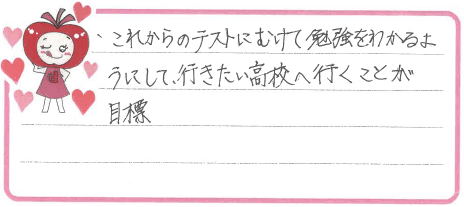 、これからのテストにむけて勉強をわかるよ
うにして、行きたい高校へ行くことが
目標